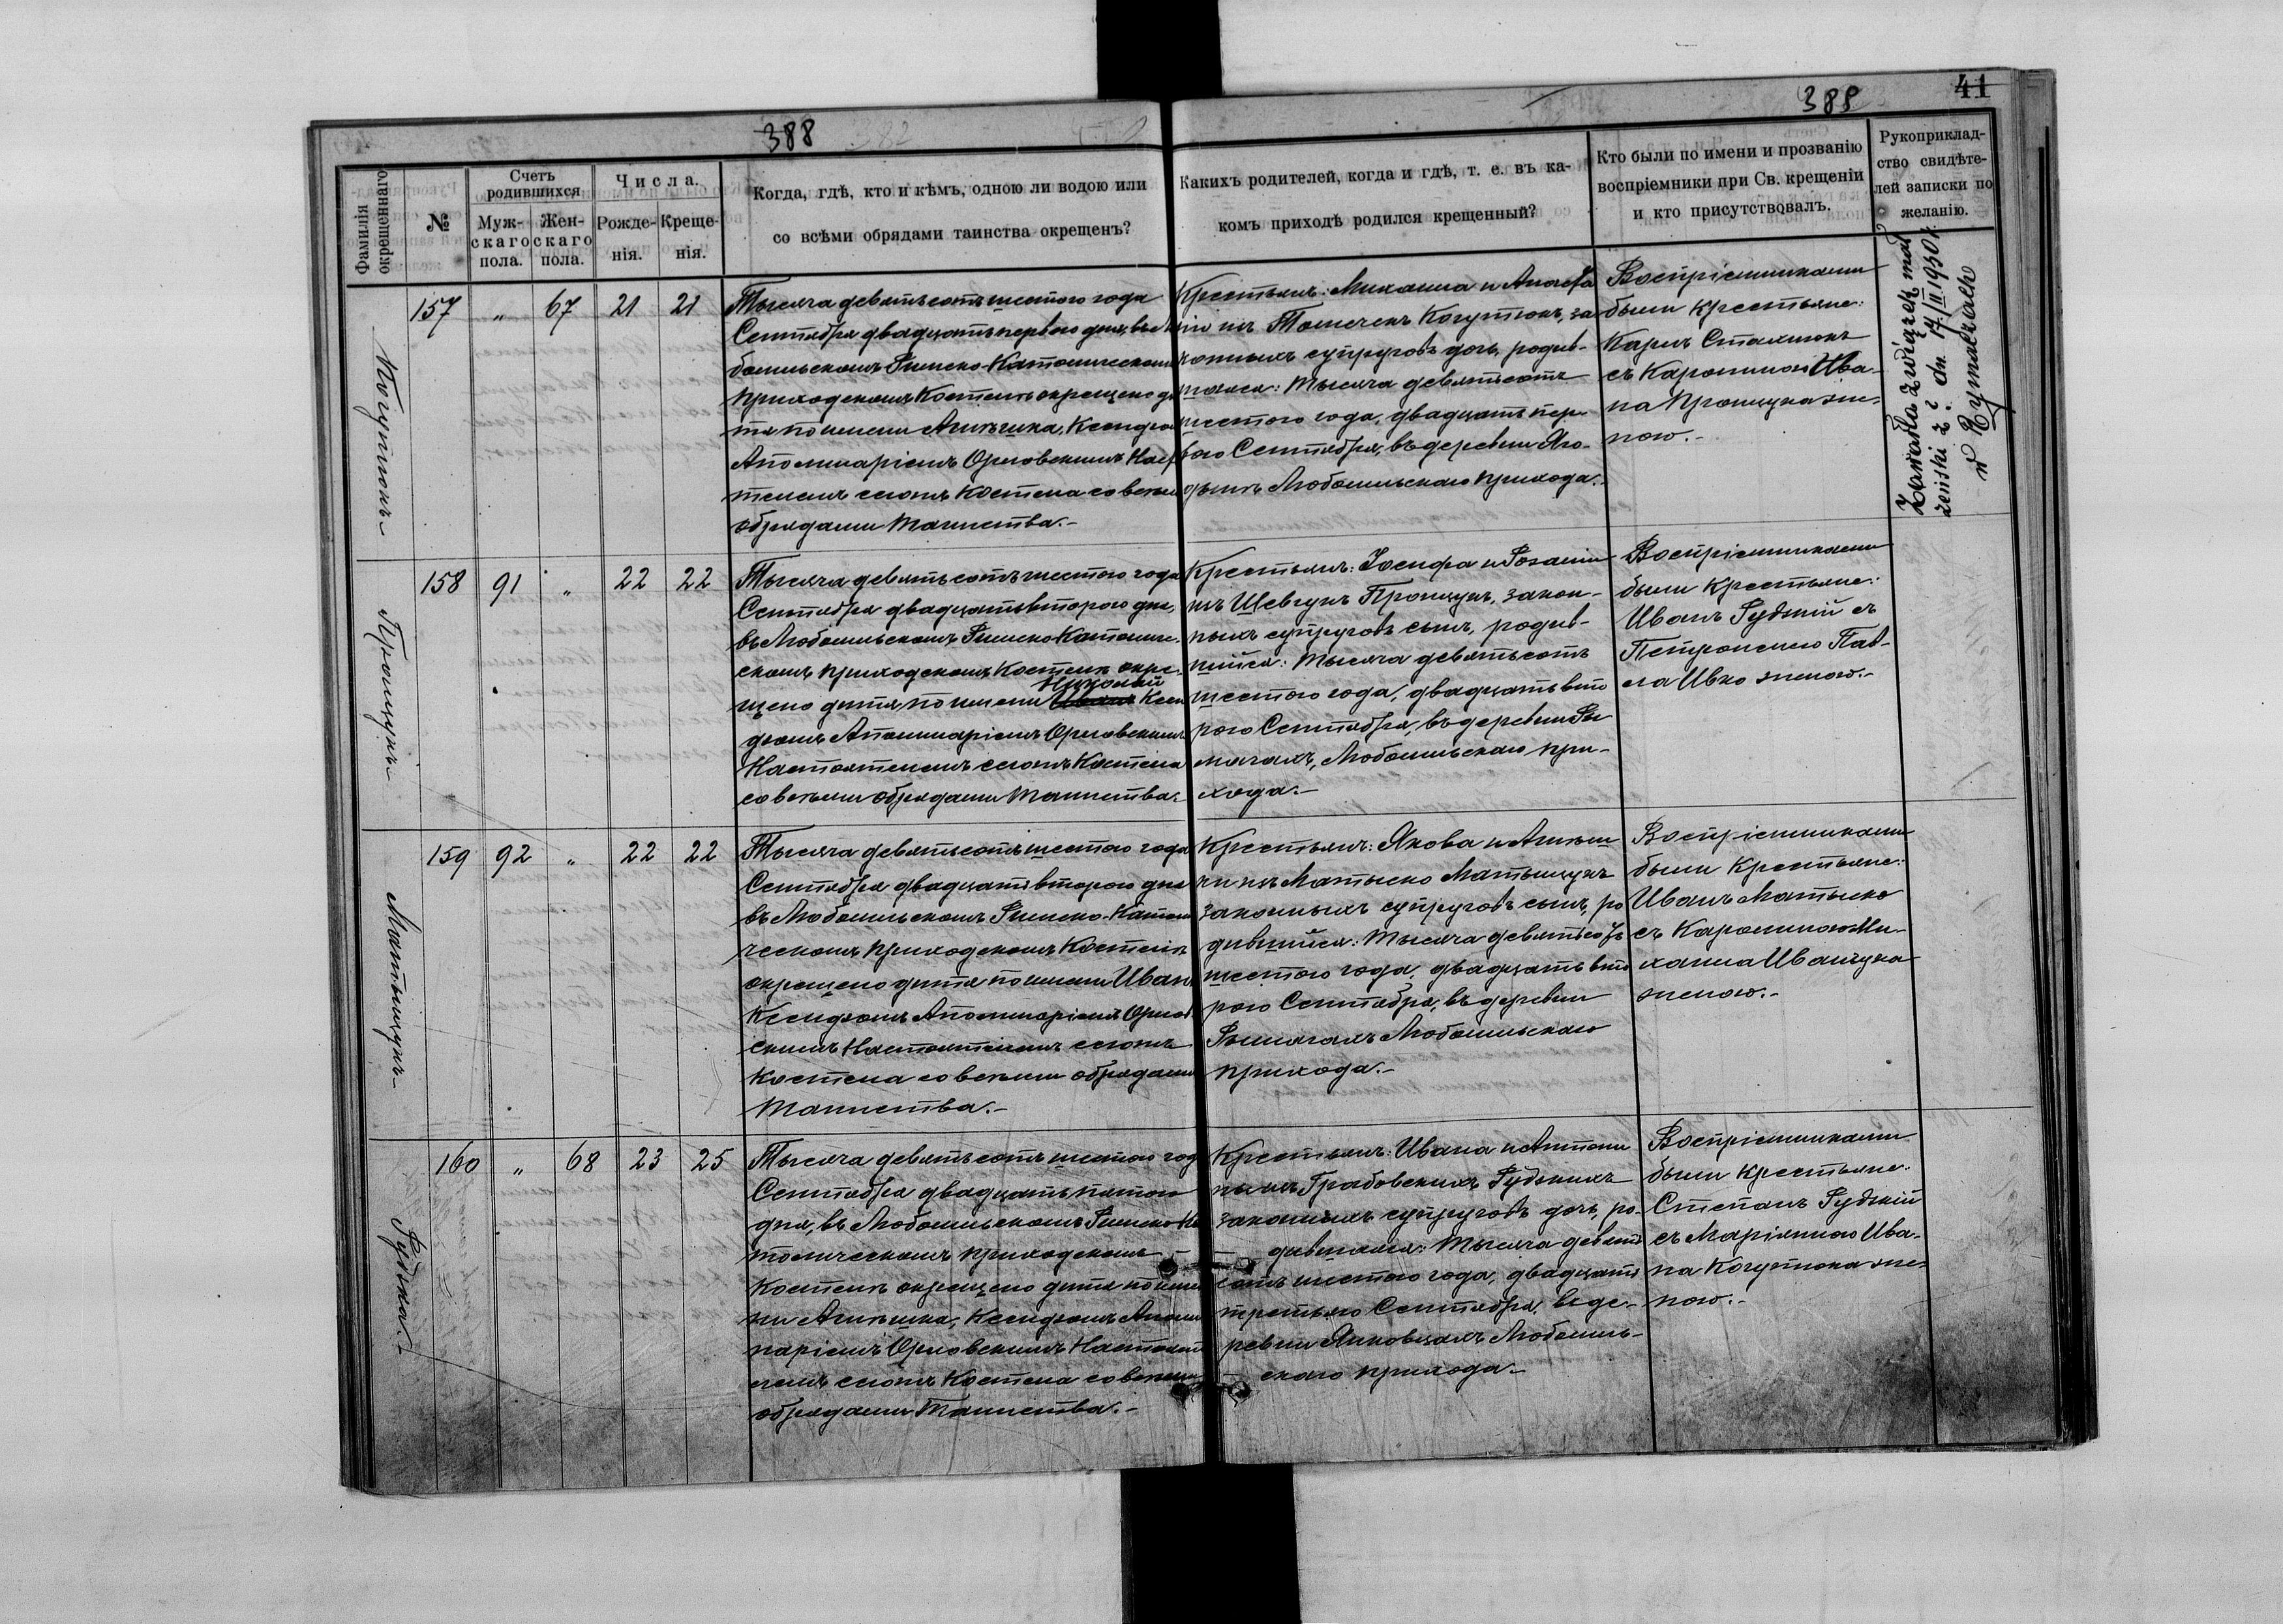 388
389
41
Фамилія окрещеннаго
№
Счетъ родившихся
Мужскаго пола.
Женскаго пола.
Числа.
Рожденія.
Крещенія.
Когда, гдѣ, кто и кѣмъ, одною ли водою или
со всѣми обрядами таинства окрещенъ?
Какихъ родителей, когда и гдѣ, т. е. въ ка-
комъ приходѣ родился крещенный?
Кто были по имени и прозванію
воспріемники при Св. крещеніи
и кто присутствовалъ.
Рукоприклад-
ство свидѣте-
лей записки по
желанію.
Когутюкъ
157 „ 67 21 21
Тысяча девятьсотъ шестого года
Сентября двадцать перваго дня, въ Лю
бомльскомъ Римско-Католическомъ
приходскомъ Костелѣ окрещено ди
тя по имени Агнѣшка, Ксендзомъ
Аполинаріемъ Орловскимъ Насто
телемъ сего-жъ Костела со всѣми
обрядами Таинства.-
Крестьянъ: Михаила и
изъ Томчекъ Когутюкъ, за
конныхъ супруговъ дочь, родив-
шаяся: тысяча девятьсотъ
шестого года, двадцать пер-
ваго Сентября, въ деревнѣ Яго-
дынѣ Любомльскаго прихода.
Воспріемниками
были крестьяне:
Карлъ Стахнюкъ
съ Каролиной Ива-
на Пронщука же-
ною.-
Zawarła związek mał
żeński z dn. 17/II 1930 r.
w Rymaczach
Пронщукъ
158 91 „ 22 22
Тысяча девятьсотъ шестого года
Сентября двадцать второго дня,
въ Любомльскомъ Римско Католиче-
скомъ приходскомъ Костелѣ окре-
Николай
щено дитя по имени Иванъ Ксен
дзомъ Аполинаріемъ Орловскимъ
Настоятелемъ сего-жъ Костела
со всѣми обрядами Таинства.
Крестьянъ: Іосифа и Розаліи
изъ Шевчукъ Пронщукъ, закон-
ныхъ супруговъ сынъ, родив-
шійся: тысяча девятьсотъ
шестого года, двадцать вто
рого Сентября, въ деревнѣ Ры
мачахъ, Любомльскаго при-
хода.-
Воспріемниками
были крестьяне:
Иванъ Рудзкій съ
Петронелею Пав-
ла Ивко женою.-
Матыщукъ
159 92 „ 22 22
Тысяча девятьсотъ шестого года
Сентября двадцать второго дня
въ Любомльскомъ Римско-Катол
ческомъ приходскомъ Костелѣ
окрещено дитя по имени Иванъ
Ксендзомъ Аполинаріемъ Орлов
скимъ Настоятелемъ сего-жъ
Костела со всѣми обрядами
Таинства.-
Крестьянъ: Якова и Агнѣш
ки изъ Матыско Матыщукъ
законныхъ супруговъ сынъ, ро
дившійся: тысяча девятьсотъ
шестого года, двадцать вто
рого Сентября, въ деревнѣ
Рымачахъ Любомльскаго
прихода.-
Воспріемниками
были крестьяне:
Иванъ Матыско
съ Каролиною Ми-
хаила Иващука
женою.-
Рудзка.
160 „ 68 23 25
Тысяча девятьсотъ шестого год
Сентября двадцать пятого
дня, въ Любомльскомъ Римско Ка
толическомъ приходскомъ
Костелѣ окрещено дитя по име
ни Агнѣшка, Ксендзомъ Аполи
наріемъ Орловскимъ Настояте
лемъ сего-жъ Костела со всѣми
обрядами Таинства.-
Крестьянъ: Ивана и Антони
ны изъ Грабовскихъ Рудзкихъ
законныхъ супруговъ дочь, ро-
дившаяся: тысяча девять
сотъ шестого года, двадцать
третьяго Сентября, въ де-
ревнѣ Янковцахъ Любомль-
скаго прихода.-
Воспріемниками
были крестьяне:
Степанъ Рудзкій
съ Маріанною Ива-
на Когутюка же-
ною.-